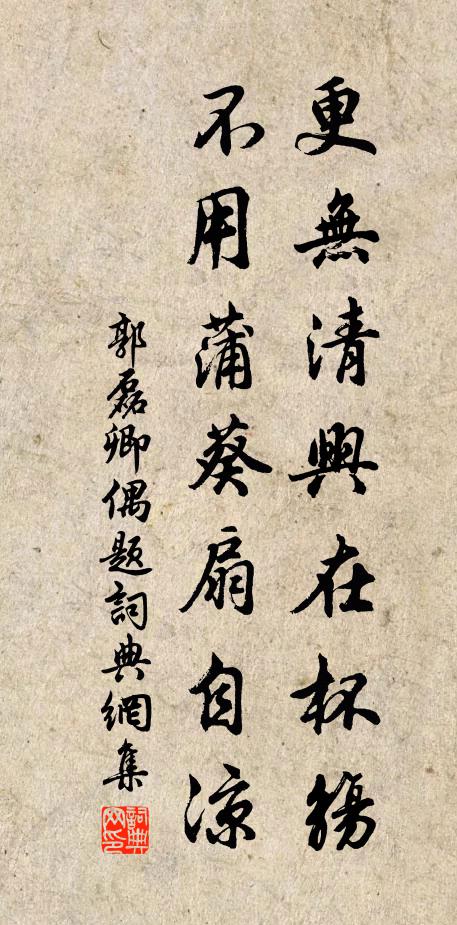 更無清興在杯觴
不用蒲葵扇自涼
郭磊卿偶題詞典網集
詞典網印